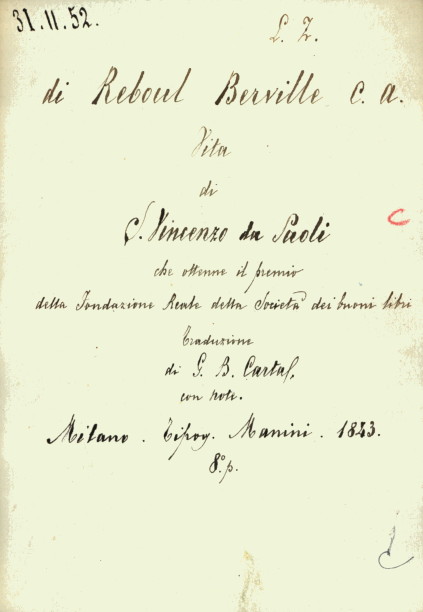 31.11.52.
L. Z.
di Reboul Berville C. A.
Vita
di
S. Vincenzo da Paoli
che ottenne il premio
della Fondazione Reale della Società dei buoni libri
Traduzione
di G. B. Cartal,
con note.
Milano. Tipog. Manini. 1823.
8.° p.
C